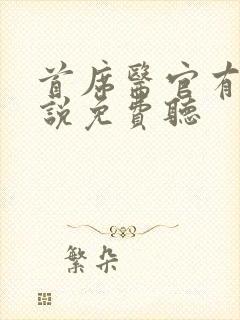 首席醫官有
說免費聽
繁朵